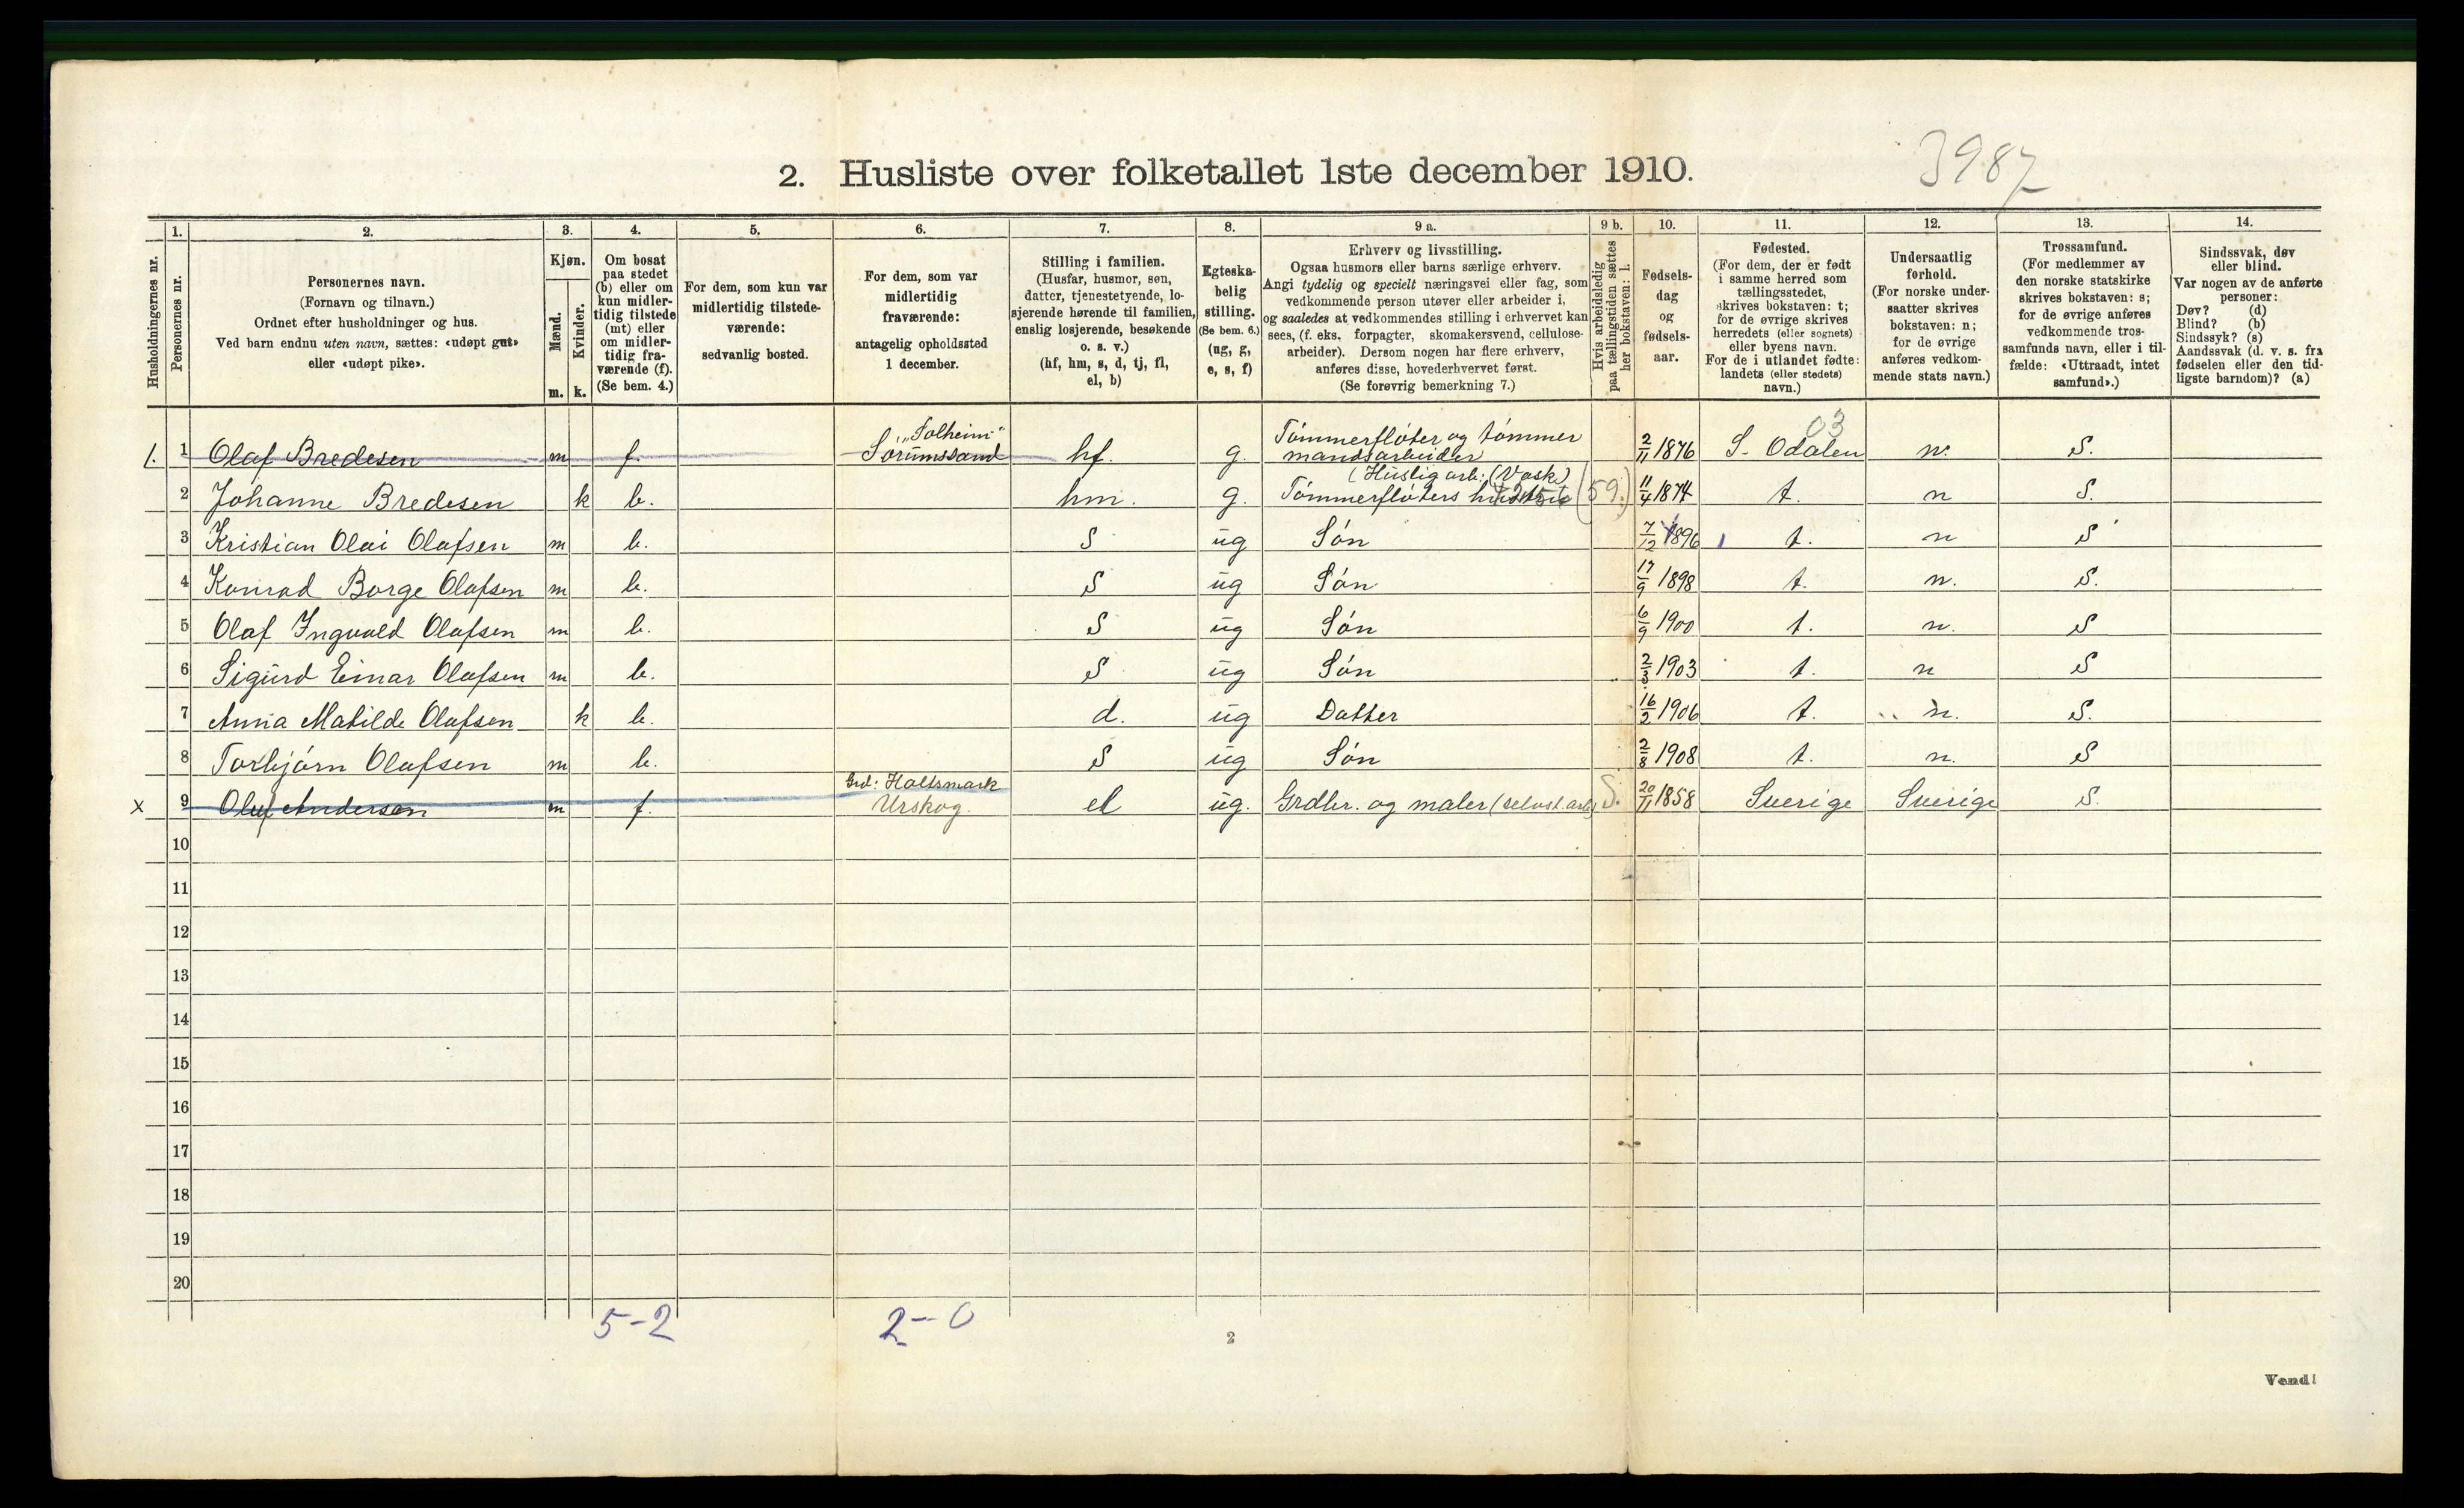 3987
2. Husliste over folketallet 1ste december 1910.
Husholdningernes nr.
1. Personernes nr.
2. Personernes navn.
(Fornavn og tilnavn.)
Ordnet efter husholdninger og hus.
Ved barn endnu uten navn, sættes: «udøpt gut»
eller «udøpt pike».
3. Kjøn.
Mænd. m.
Kvinder. k.
4. Om bosat
paa stedet
(b) eller om
kun midler-
tidig tilstede
(mt) eller
om midler-
tidig fra-
værende (f).
(Se bem. 4.)
5. For dem, som kun var
midlertidig tilstede-
værende:
sedvanlig bosted.
6. For dem, som var
midlertidig
fraværende:
antagelig opholdssted
1 december.
7. Stilling i familien.
(Husfar, husmor, søn,
datter, tjenestetyende, lo-
sjerende hørende til familien,
enslig losjerende, besøkende
o. s. v.)
(hf, hm, s, d, tj, fl,
el, b)
8. Egteska-
belig
stilling.
(Se bem. 6.)
(ug, g,
e, s, f)
9 a. Erhverv og livsstilling.
Ogsaa husmors eller barns særlige erhverv.
Angi tydelig og specielt næringsvei eller fag, som
vedkommende person utøver eller arbeider i,
og saaledes at vedkommendes stilling i erhvervet kan
sees, (f. eks. forpagter, skomakersvend, cellulose-
arbeider). Dersom nogen har flere erhverv,
anføres disse, hovederhvervet først.
(Se forøvrig bemerkning 7.)
9 b. Hvis arbeidsledig
paa tællingstiden sættes
her bokstaven: l.
10. Fødsels-
dag
og
fødsels-
aar.
11. Fødested.
(For dem, der er født
i samme herred som
tællingsstedet,
skrives bokstaven: t;
for de øvrige skrives
herredets (eller sognets)
eller byens navn.
For de i utlandet fødte:
landets (eller stedets)
navn.)
12. Undersaatlig
forhold.
(For norske under-
saatter skrives
bokstaven: n;
for de øvrige
anføres vedkom-
mende stats navn.)
13. Trossamfund.
(For medlemmer av
den norske statskirke
skrives bokstaven: s;
for de øvrige anføres
vedkommende tros-
samfunds navn, eller i til-
fælde: «Uttraadt, intet
samfund».)
14. Sindssvak, døv
eller blind.
Var nogen av de anførte
personer:
Døv? (d)
Blind? (b)
Sindssyk? (s)
Aandssvak (d. v. s. fra
fødselen eller den tid-
ligste barndom)? (a)
"Solheim" Tömmerflöter og tömmer 03
1. 1 Olaf Bredesen m f. Sörumssand hf. g. mandsarbeider 2/11 1876 S. Odalen n. S.
(Huslig arb: (Vask)
2 Johanne Bredesen k b. hm. g. Tömmerflöters hustru (59.) 11/4 1874 t. n S.
3 Kristian Olai Olafsen m b. S ug Sön 7/12 1896 t. n S
4 Konrad Borge Olafsen m b. S ug Sön 17/9 1898 t. n. S.
5 Olaf Ingvald Olafsen m b. S ug Sön 6/9 1900 t. n. S
6 Sigurd Einar Olafsen m b. S ug Sön 2/3 1903 t. n S
7 Anna Matilde Olafsen k b. d. ug Datter 16/2 1906 t. n. S.
8 Torbjörn Olafsen m b. S ug Sön 2/8 1908 t. n. S
Grd: Holtsmark
x 9 Oluf Anderson m f. Urskog. el ug. Grdbr. og maler (selvst. arb) S. 20/11 1858 Sverige Sverige S.
10
11
12
13
14
15
16
17
18
19
20
5-2 2-0
2
Vend!